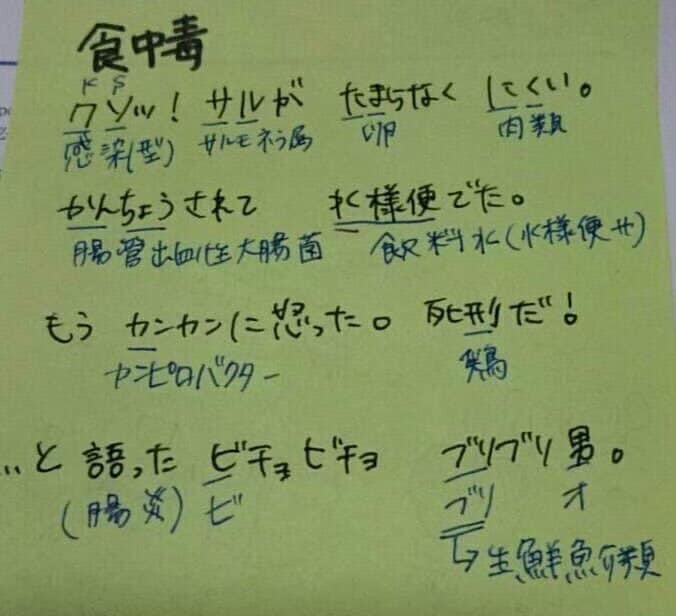 食中毒
K S
クソッ! サルが たまらなく にくい。
感染(型) サルモネラ属 卵 肉類
かんちょうされて 水様便でた。
腸管出血性大腸菌 飲料水(水様便サ)
もう カンカンに怒った。 死刑だ!
カンピロバクター 鶏
…と 語った ビチョビチョ ブリブリ男。
(腸炎)ビ ブリ オ
↳生鮮魚介類